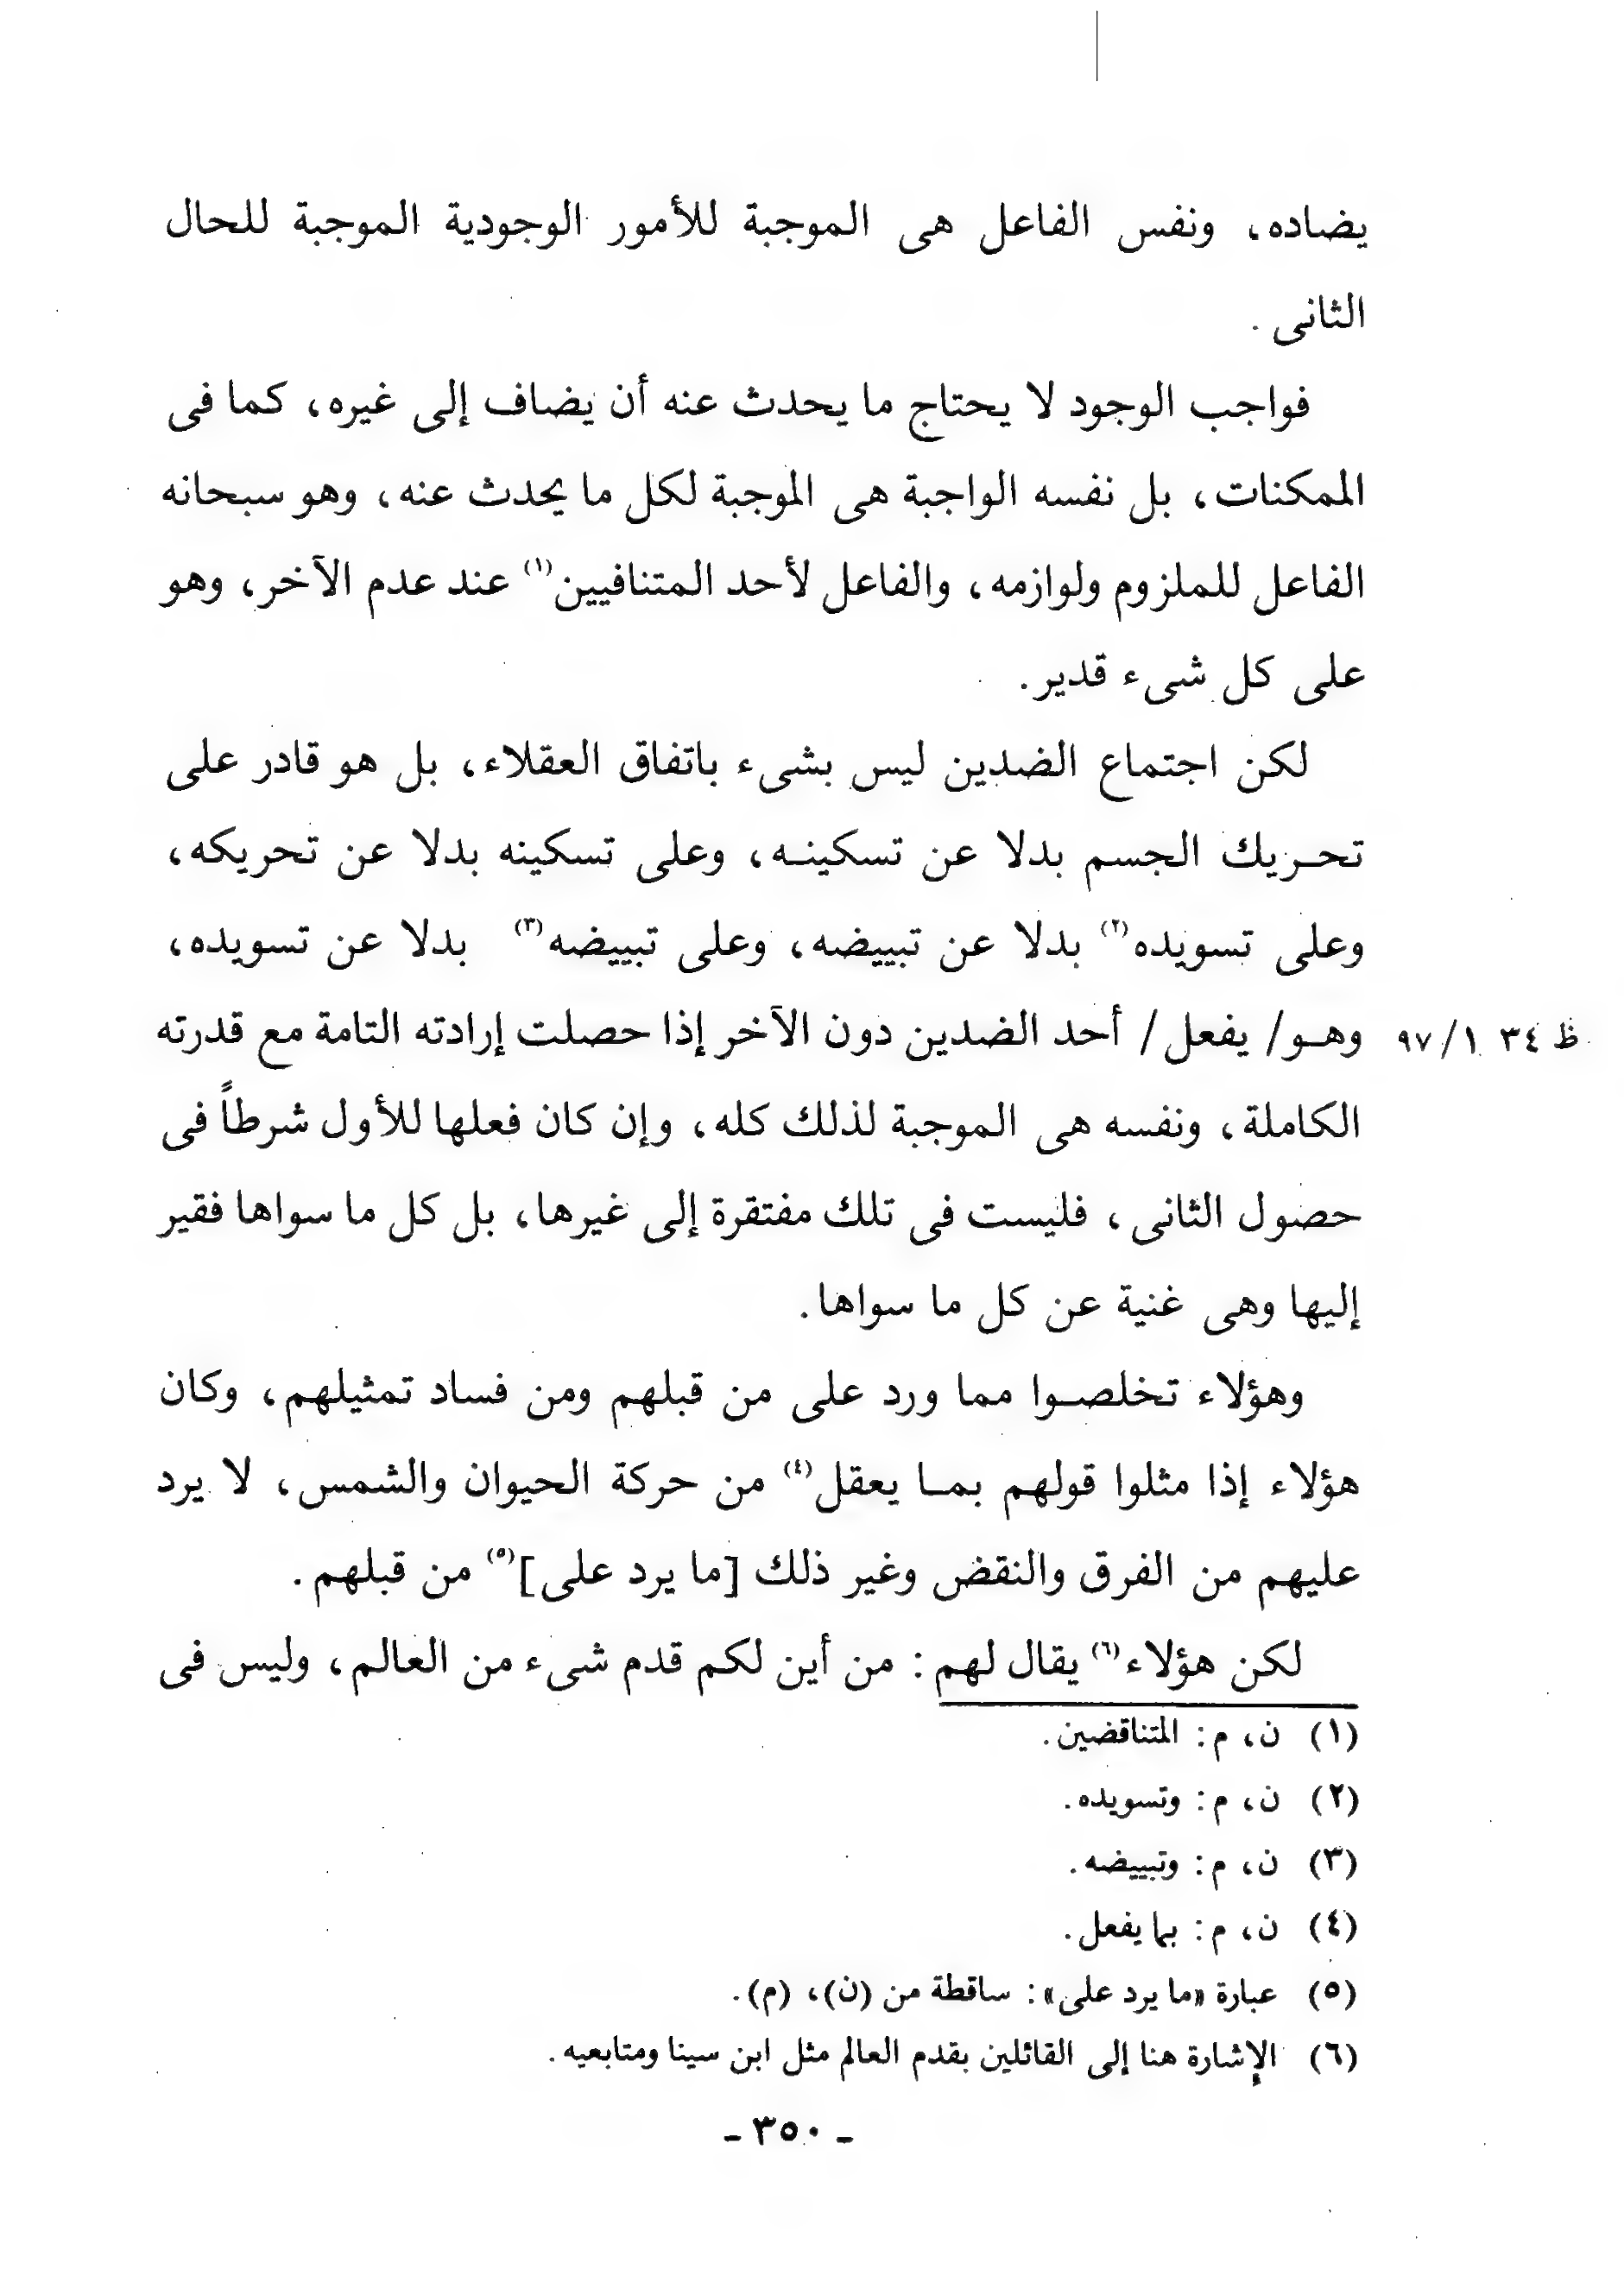 يضاده، ونفس الفاعل هى الموجبة للأمور الوجودية الموجبة للحال
الثانى .
فواجب الوجود لا يحتاج ما يحدث عنه أن يضاف إلى غيره، كما فى
الممكنات، بل نفسه الواجبة هى الموجبة لكل ما يحدث عنه، وهو سبحانه
الفاعل للملزوم ولوازمه، والفاعل لأحد المتنافيين(١) عند عدم الآخر، وهو
على كل شىء قدير.
لكن اجتماع الضدين ليس بشىء باتفاق العقلاء، بل هو قادر على
تحـريك الجسم بدلا عن تسكينـه، وعلى تسكينه بدلا عن تحريكه،
وعلى تسويده(٢) بدلا عن تبييضه، وعلى تبييضه(٣) بدلا عن تسويده،
ظ ٣٤ ٩٧/١ وهـو/ يفعل/ أحد الضدين دون الآخر إذا حصلت إرادته التامة مع قدرته
الكاملة، ونفسه هى الموجبة لذلك كله، وإن كان فعلها للأول شرطاً فى
حصول الثانى، فليست فى تلك مفتقرة إلى غيرها، بل كل ما سواها فقير
إليها وهى غنية عن كل ما سواها.
وهؤلاء تخلصـوا مما ورد على من قبلهم ومن فساد تمثيلهم، وكان
هؤلاء إذا مثلوا قولهم بمـا يعقل(٤) من حركة الحيوان والشمس، لا يرد
عليهم من الفرق والنقض وغير ذلك [ما يرد على](٥) من قبلهم.
لكن هؤلاء(٦) يقال لهم: من أين لكم قدم شىء من العالم، وليس فى
(١) ن، م: المتناقضين.
(٢) ن، م: وتسويده.
(٣) ن، م: وتبييضه.
(٤) ن، م: بما يفعل.
(٥) عبارة «ما يرد على»: ساقطة من (ن)، (م).
(٦) الإشارة هنا إلى القائلين بقدم العالم مثل ابن سينا ومتابعيه.
- ٣٥٠ -